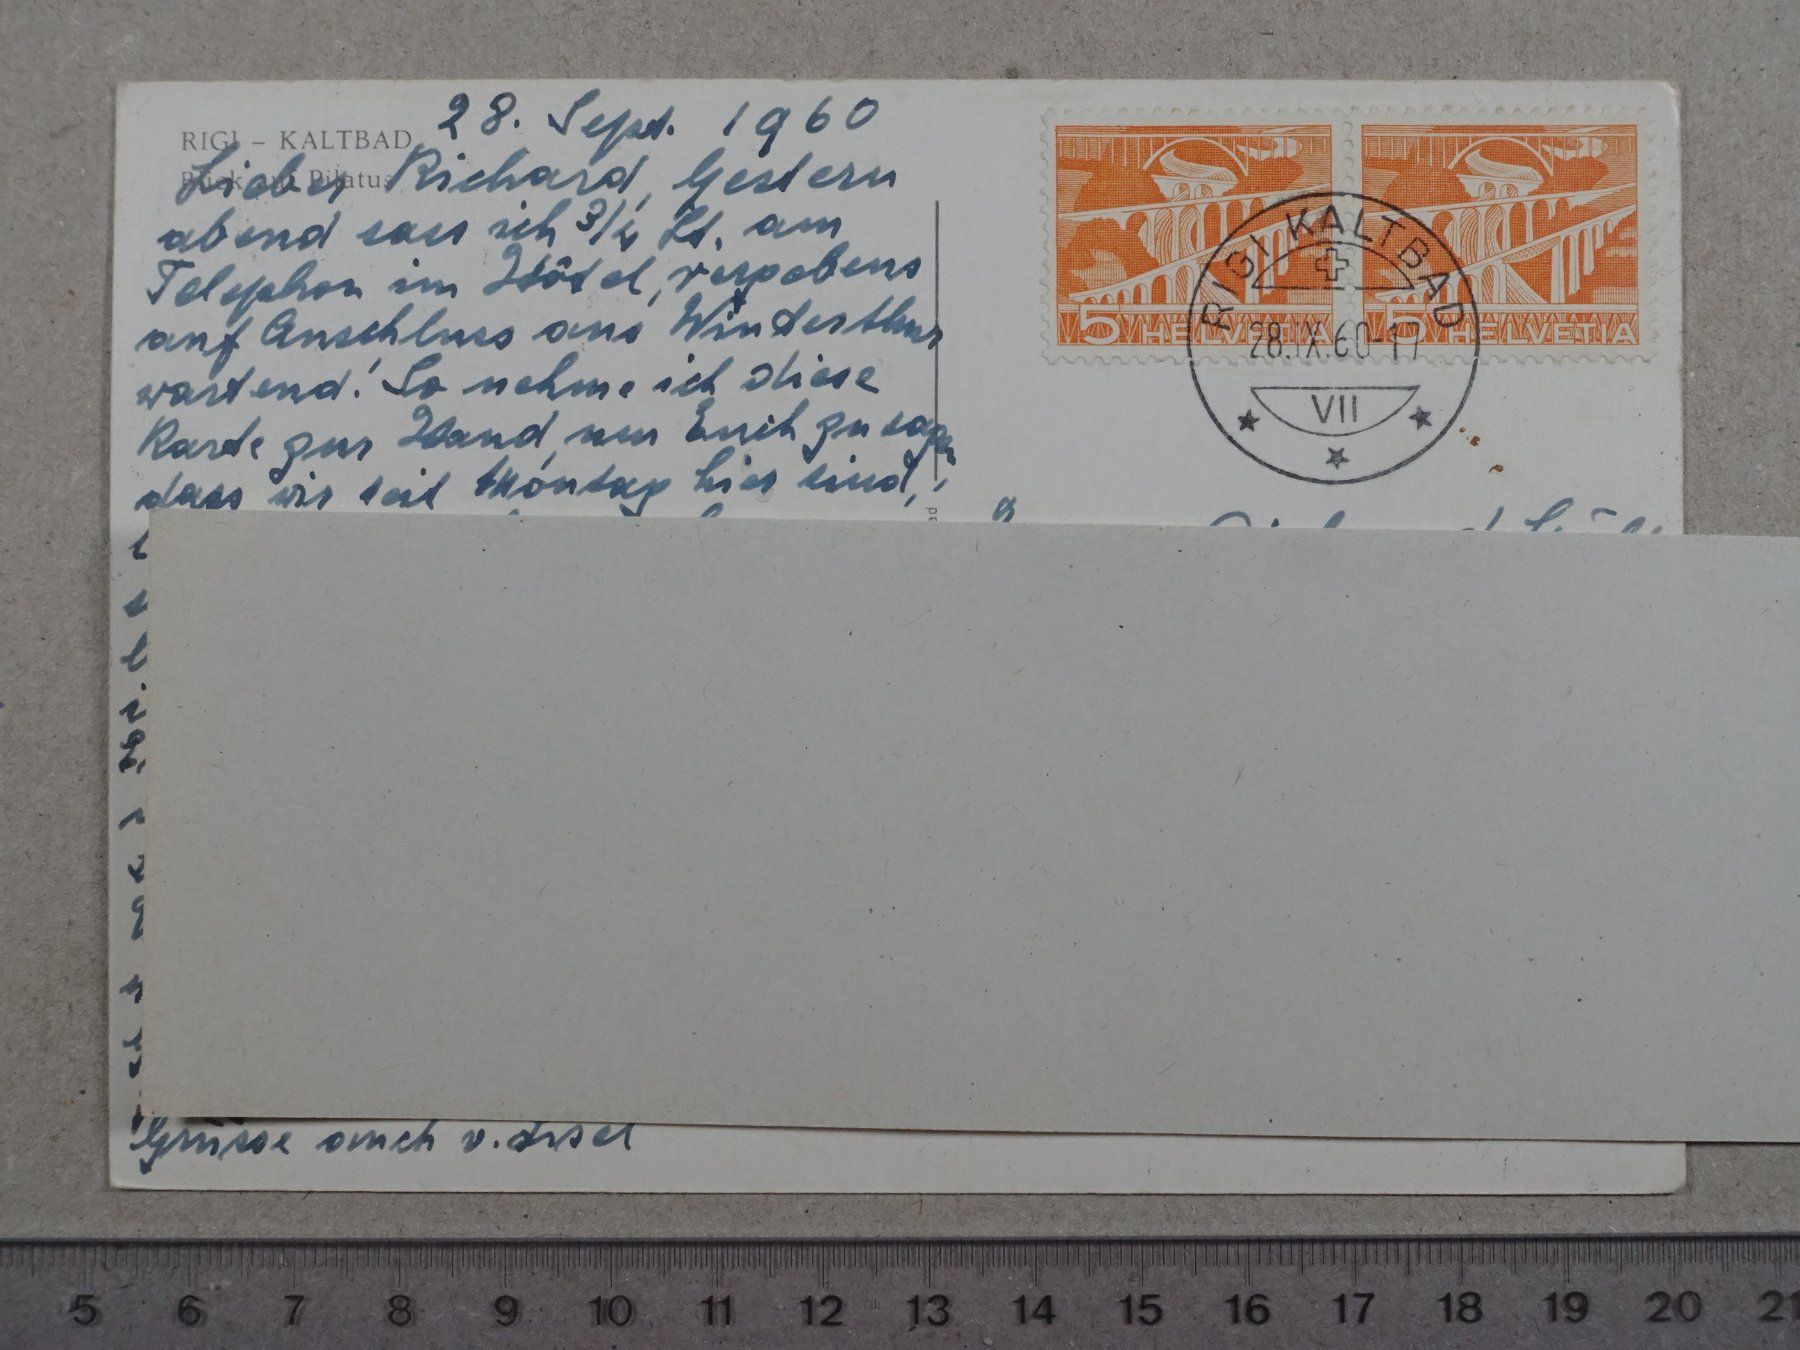 28. Sept. 1960
RIGI – KALTBAD
Blick auf Pilatus
Lieber Richard, Gestern
abend sass ich 3/4 St. am
Telephon im Hôtel, vergebens
auf Anschluss aus Winterthur
wartend! So nehme ich diese
Karte zur Hand um Euch zu sagen
dass wir seit Montag hier sind,
Grüsse auch v.
5 HELVETIA
5 HELVETIA
RIGI KALTBAD
28.IX.60-17
VII
5 6 7 8 9 10 11 12 13 14 15 16 17 18 19 20 21